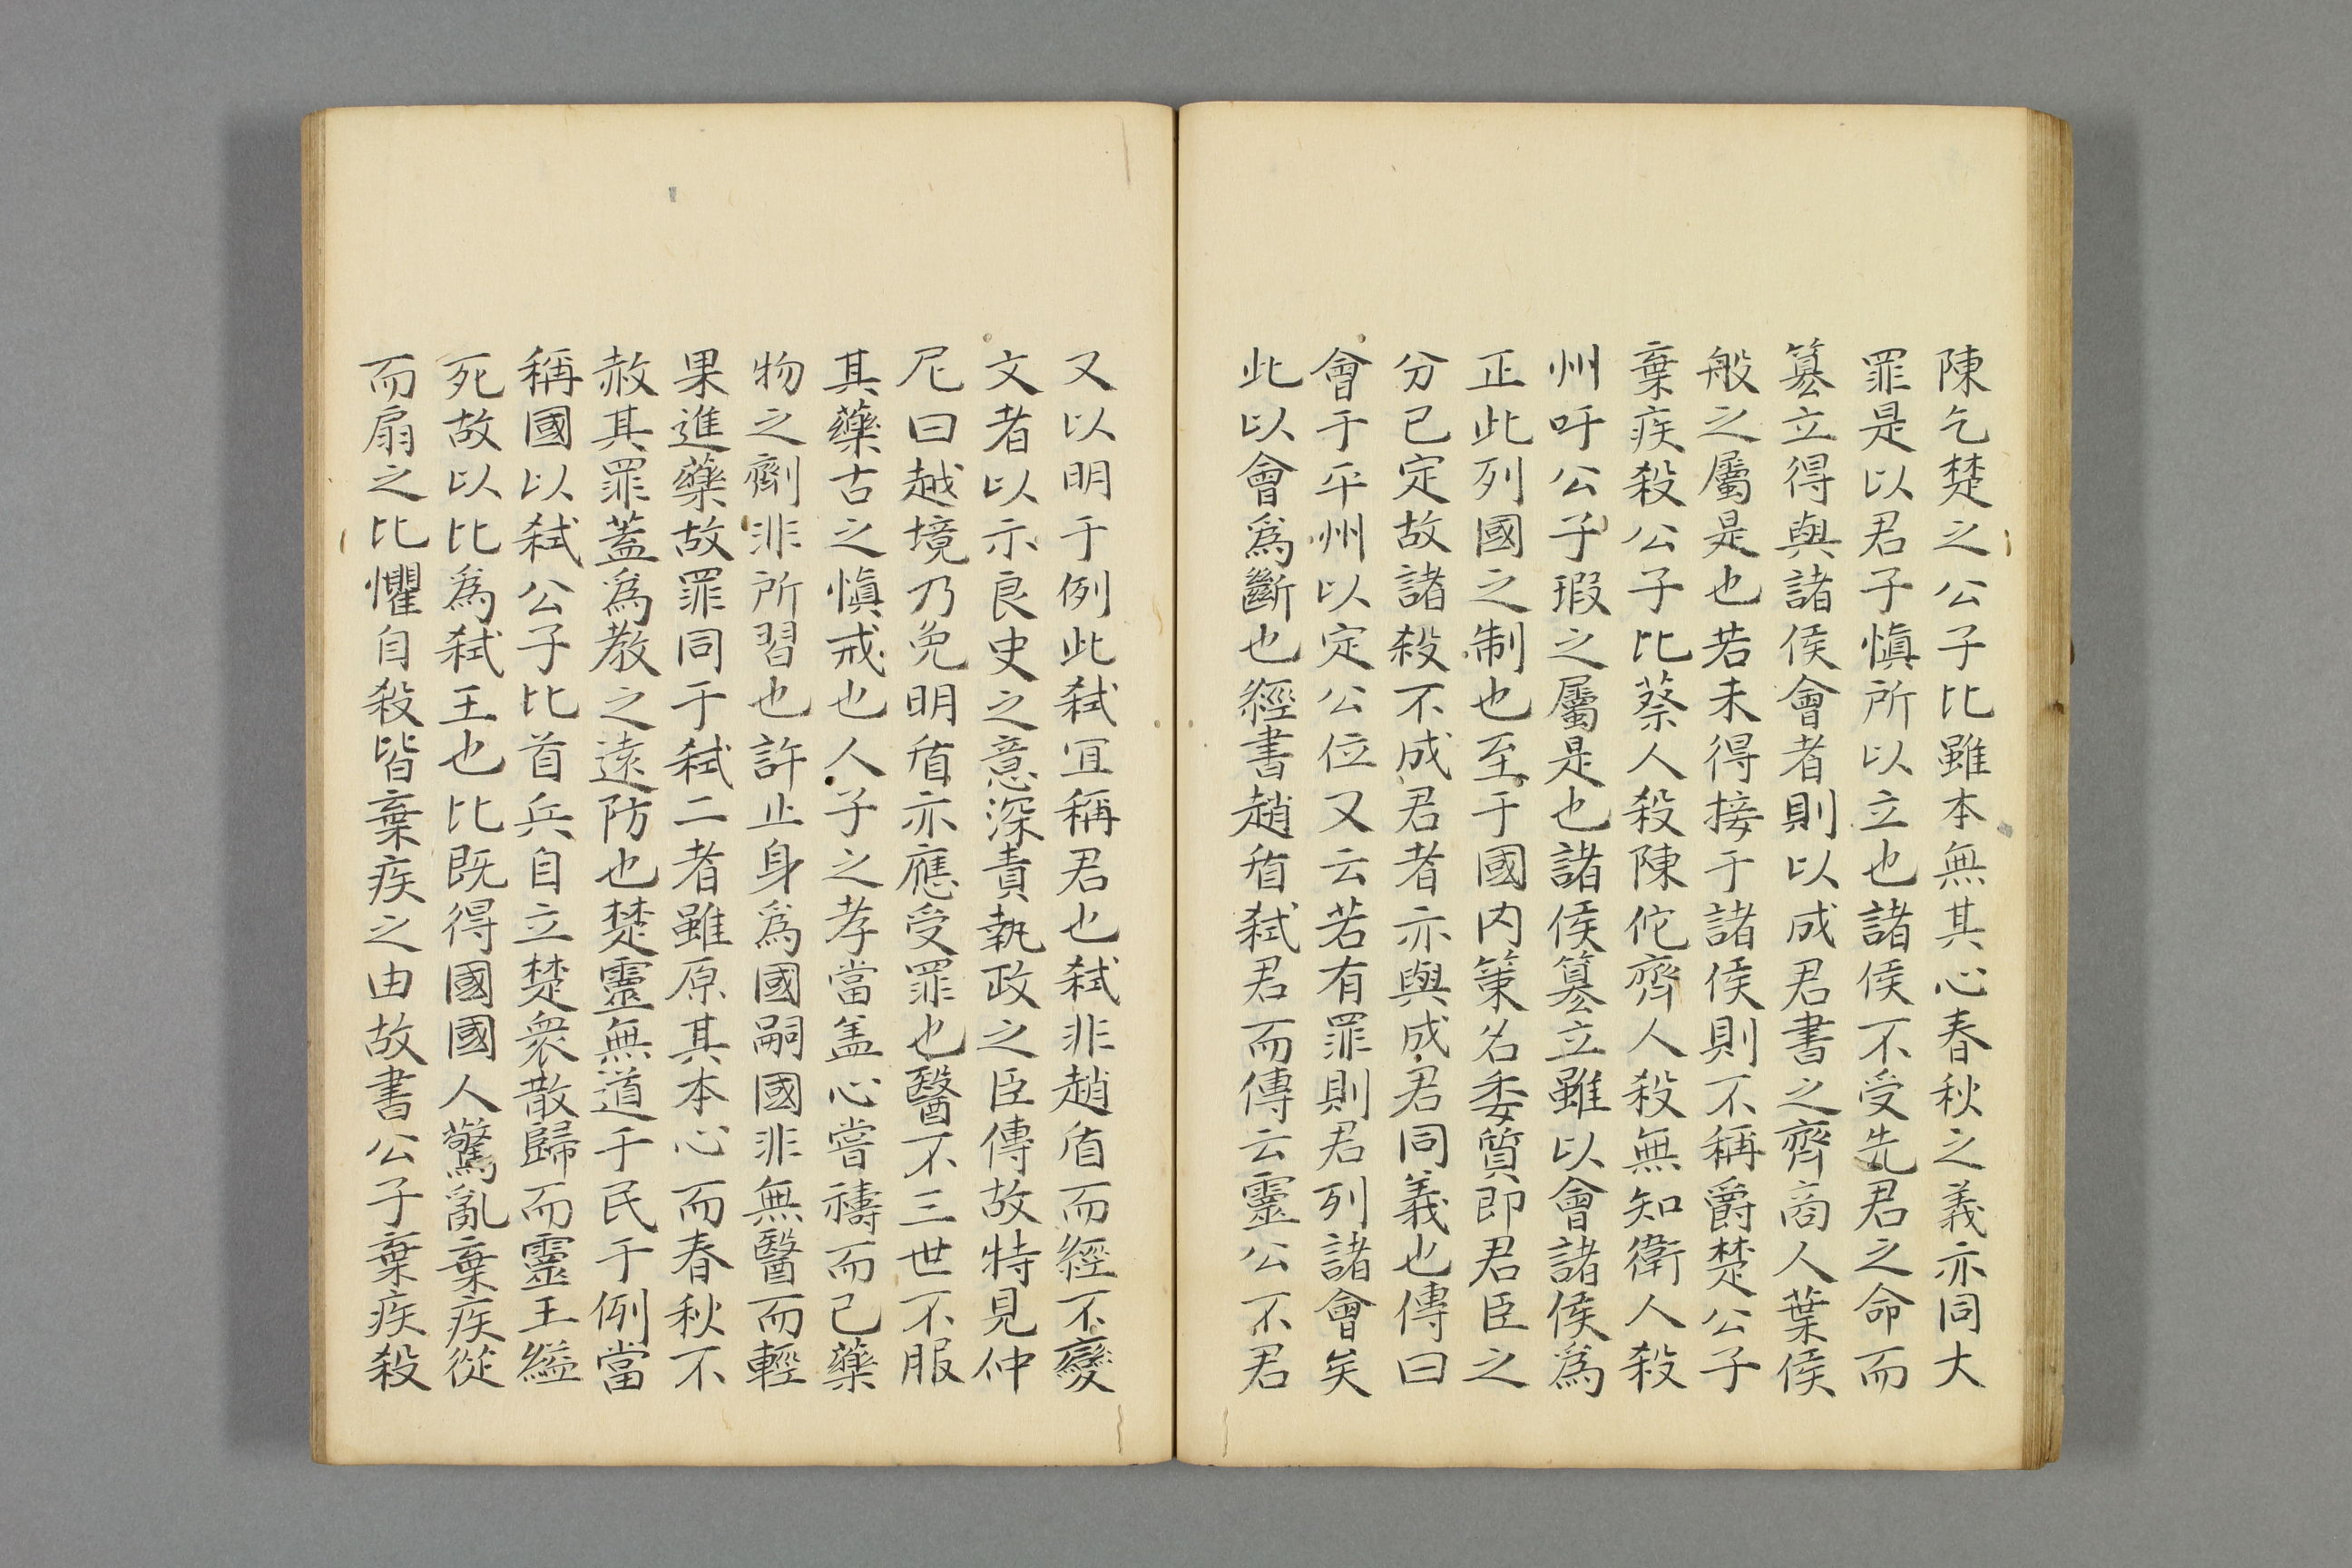 陳乞楚之公子比雖本無其心春秋之義亦同大
罪是以君子愼所以立也諸侯不受先君之命而
篡立得與諸侯會者則以成君書之齊商人葉侯
般之屬是也若未得接于諸侯則不稱爵楚公子
棄疾殺公子比蔡人殺陳佗齊人殺無知衛人殺
州吁公子瑕之屬是也諸侯篡立雖以會諸侯爲
正此列國之制也至于國内策名委質即君臣之
分已定故諸殺不成君者亦與成君同義也傳曰
會于平州以定公位又云若有罪則君列諸會矣
此以會爲斷也經書趙盾弑君而傳云靈公不君
又以明于例此弑宜稱君也弑非趙盾而經不變
文者以示良史之意深責執政之臣傳故特見仲
尼曰越境乃免明盾亦應受罪也醫不三世不服
其藥古之愼戒也人子之孝當盖心嘗禱而已藥
物之劑非所習也許止身爲國嗣國非無醫而輕
果進藥故罪同于弑二者雖原其本心而春秋不
赦其罪蓋爲教之遠防也楚靈無道于民于例當
稱國以弑公子比首兵自立楚衆散歸而靈王縊
死故以比爲弑王也比既得國國人驚亂棄疾從
而扇之比懼自殺皆棄疾之由故書公子棄疾殺